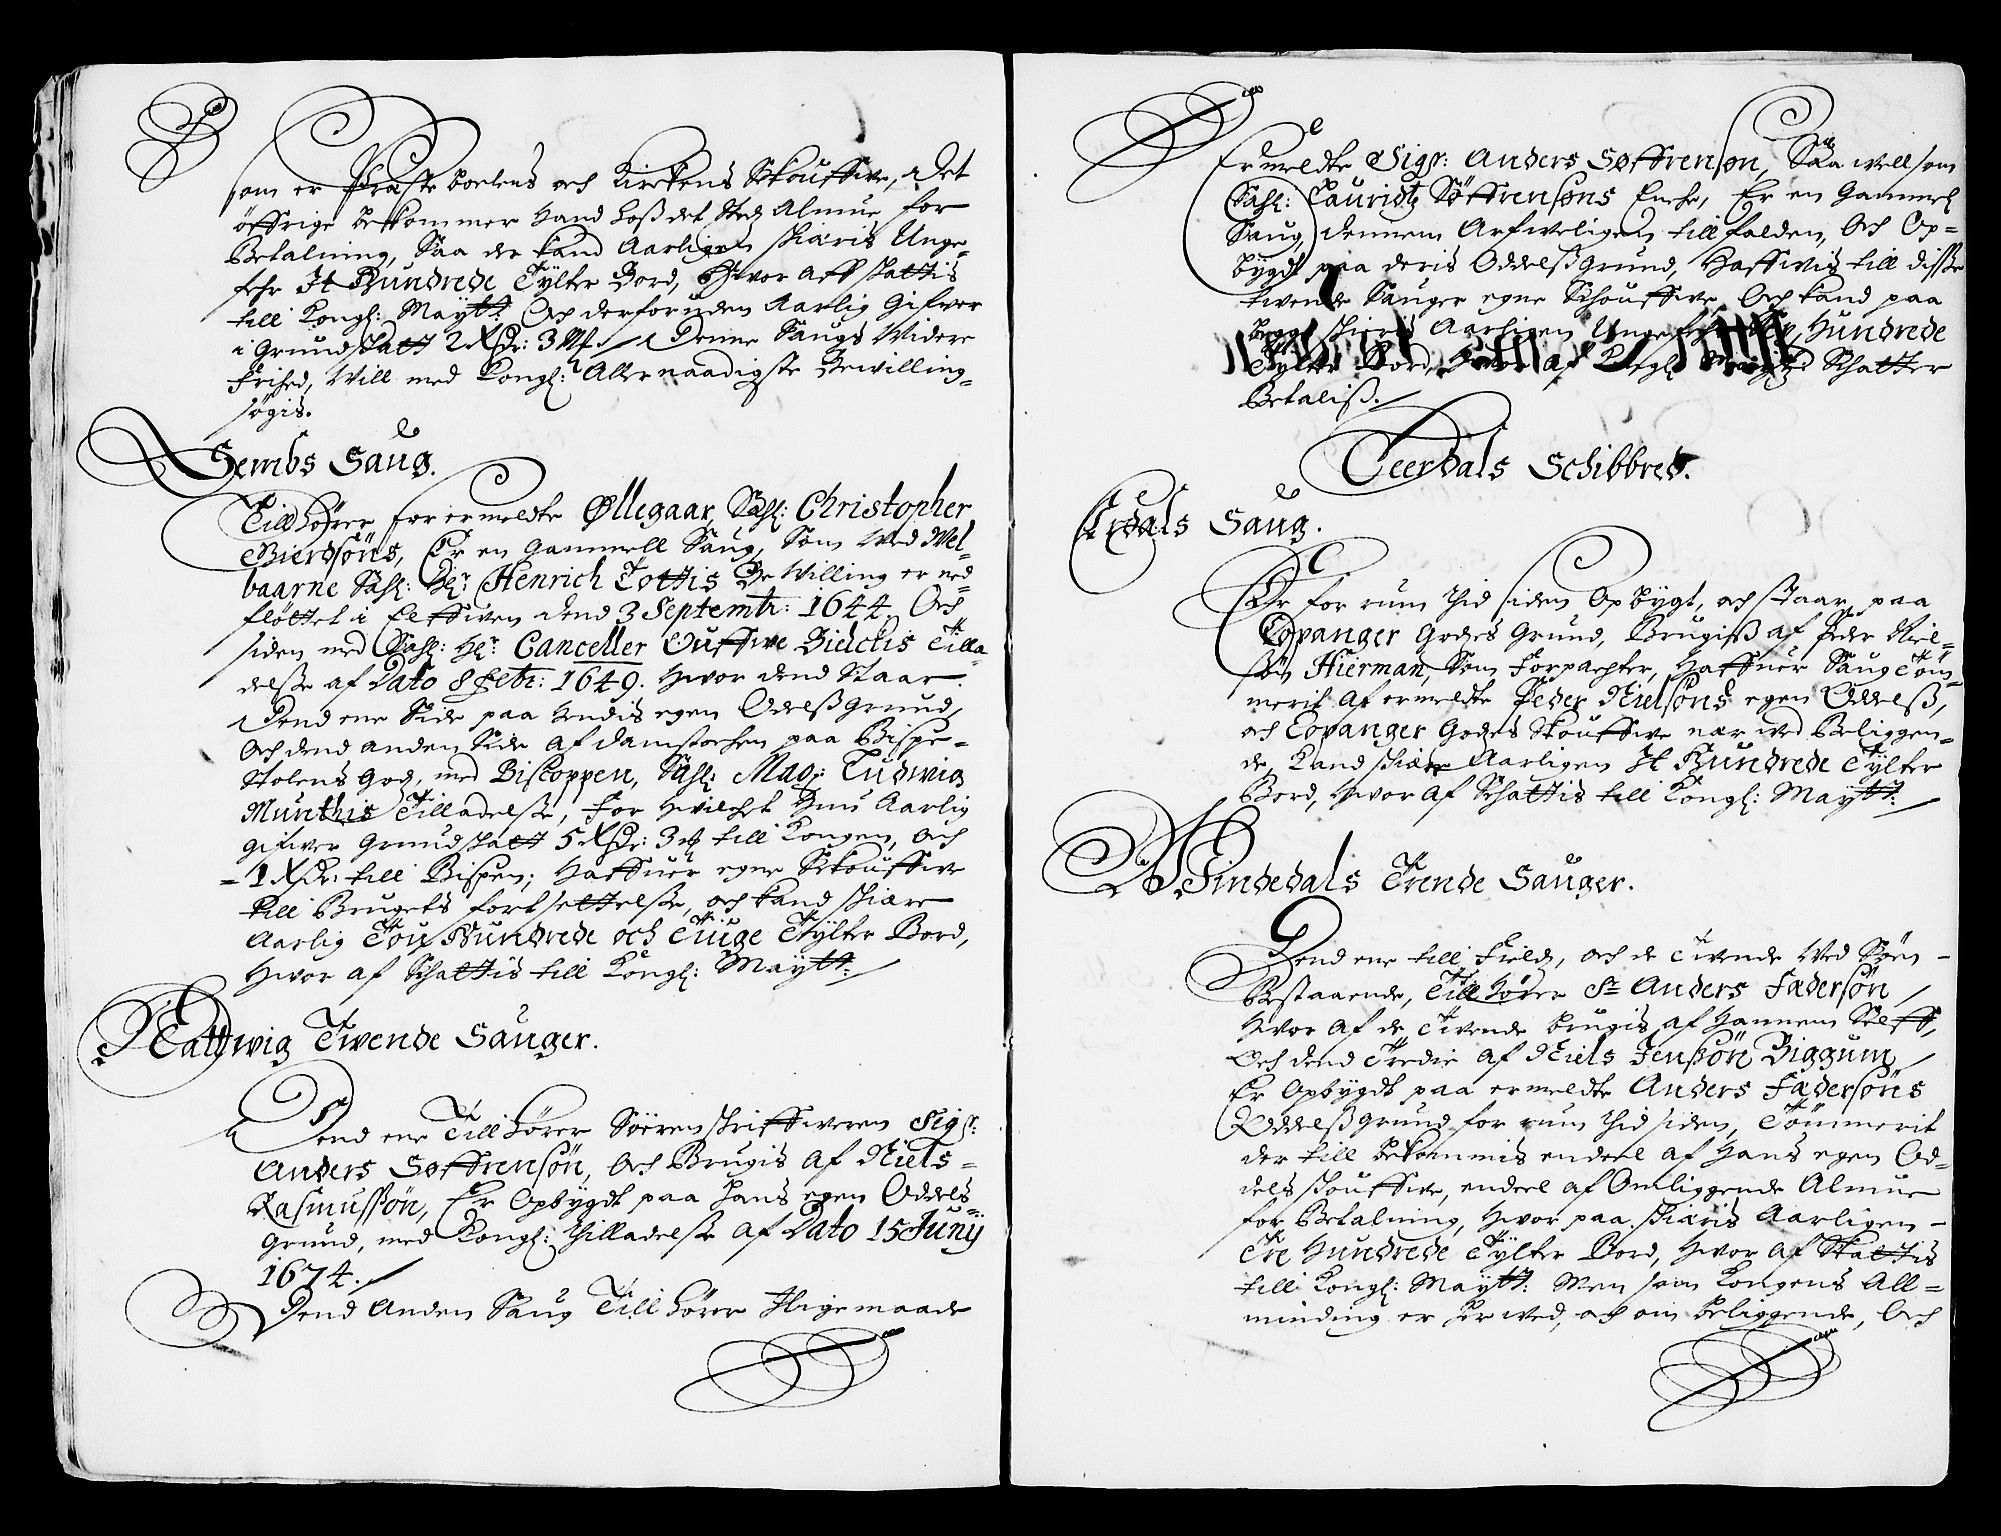 som er Præsteboelens och Kirckens Skouffue, Det
öffrige bekommer hand hoß det Sted Almue for
Betalning, Saa der kand Aarligen skiæris Unge-
fehr It Hundrede Tylter Bord, Hvor aff skattis
till Kongl: Maytt: Och derforuden Aarlig Gifver
i Grundskatt 2 Rdr: 3 Mk. Denne Saugs Videre
Frihed, Will med Kongl: Allernaadigste Bewilling-
søgis.
Sembs Saug.
Tillhører forermeldte Øllegaar, Sahl: Christopher
Gierdsöns, Er en Gammell Saug, Som Med Wel-
baarne Sahl: Hr: Henrich Tottis Bewilling er ned
fløttet i Elffuen dend 3 Septembr: 1644, Och
siden med Sahl: Hr: Canceller Ouffwe Bielckis Tilla-
delsse af Dato 8 Febr: 1649. Hvor dend Staar
Dend ene Side paa hendis egen Odelß Grund,
Och dend anden Side af damstochen paa Bispe-
Stolens God, med Biscoppen, Sahl: Mag: Ludwig
Munthis Tilladelsse, For hvilchet hun Aarlig
gifver Grundskatt 5 Rdr: 3 ß till Kongen, och
- 1 Rdr: till Bispen; Haffuer egne Skouffve
till Brugets fortsettelsse, och kand skiære
Aarlig Tou Hundrede och Tiuge Tylter Bord,
Hvor af Skattis till Kongl: Maytt:
Hattwig Tvende Sauger.
Dend ene Tillhører Sörenskriffweren Sigr:
Anders Søffrensön, Och Brugis af Niels-
Rasmussøn, Er Opbygdt paa hans egen Oddels-
Grund, med Kongl: Tilladelsse af Dato 15 Junij
1674.
Dend Anden Saug Tillhører Ligemaade
Ermeldte Sigr: Anders Søffrensøn, Saa well som
Sahl: Lauridtz Söffrensøns Encke, Er en Gammel
Saug, dennem Arfveligen till falden, Och Op-
bygdt paa deris Oddelß Grund, Haffwis till disse
tvende Sauger egne Schouffve, Och kand paa
begge skieris Aarligen Ungefehr Hundrede
Tylter Bord, Hvor af Kongl: Maytt: Schatter
Betaliß.
Leerdals Schibbred.
Erdals Saug.
Er for rum tid siden Opbygt, och staar paa
Copanger Godes Grund, Brugiß af Peder Niel-
søn Hierman, Som Forpachter, Haffuer Saug Töm-
merit af ermeldte Peder Nielsøns egen Oddelß,
och Copanger Godes Skouffve nær ved Beliggen-
de, Kand skiære Aarligen It Hundrede Tylter
Bord, Hvor af Schattis till Kongl: Maytt:
Vindedals Trende Sauger.
Dend ene till Fields, och de Tvende Ved Søen -
Bestaaende, Tillhører Sr Anders Fædersøn
Hvor af de Tvende brugis af Hannem Self,
Och dend Tredie af Niels Jenssøn Biggum
Er Opbygdt paa ermeldte Anders Fædersøns
Oddelß Grund for rum tid siden, Tömmerit
der till bekommis endeel af Hans egen Od-
dels skouffve, endeel af Omliggende Almue
for Betalning, Hvor paa skiæris Aarligen -
Tre Hundrede Tylter Bord, Hvor af Skattis
till Kongl: Maytt: Men som Kongens All-
minding er her ved, och om beliggende, Och